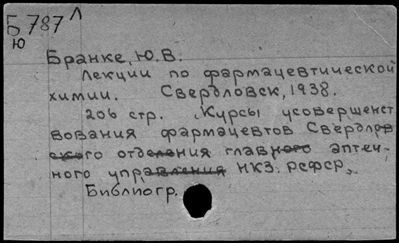 Б 787 Л
Ю
Бранке, Ю.В.
Лекции по фармацевтической
химии. Свердловск, 1938.
206 стр. Курсы усовершенст
вования фармацевтов Свердлов
ского отделения главного аптеч,
ного управления НКЗ. РСФСР,
Библиогр.